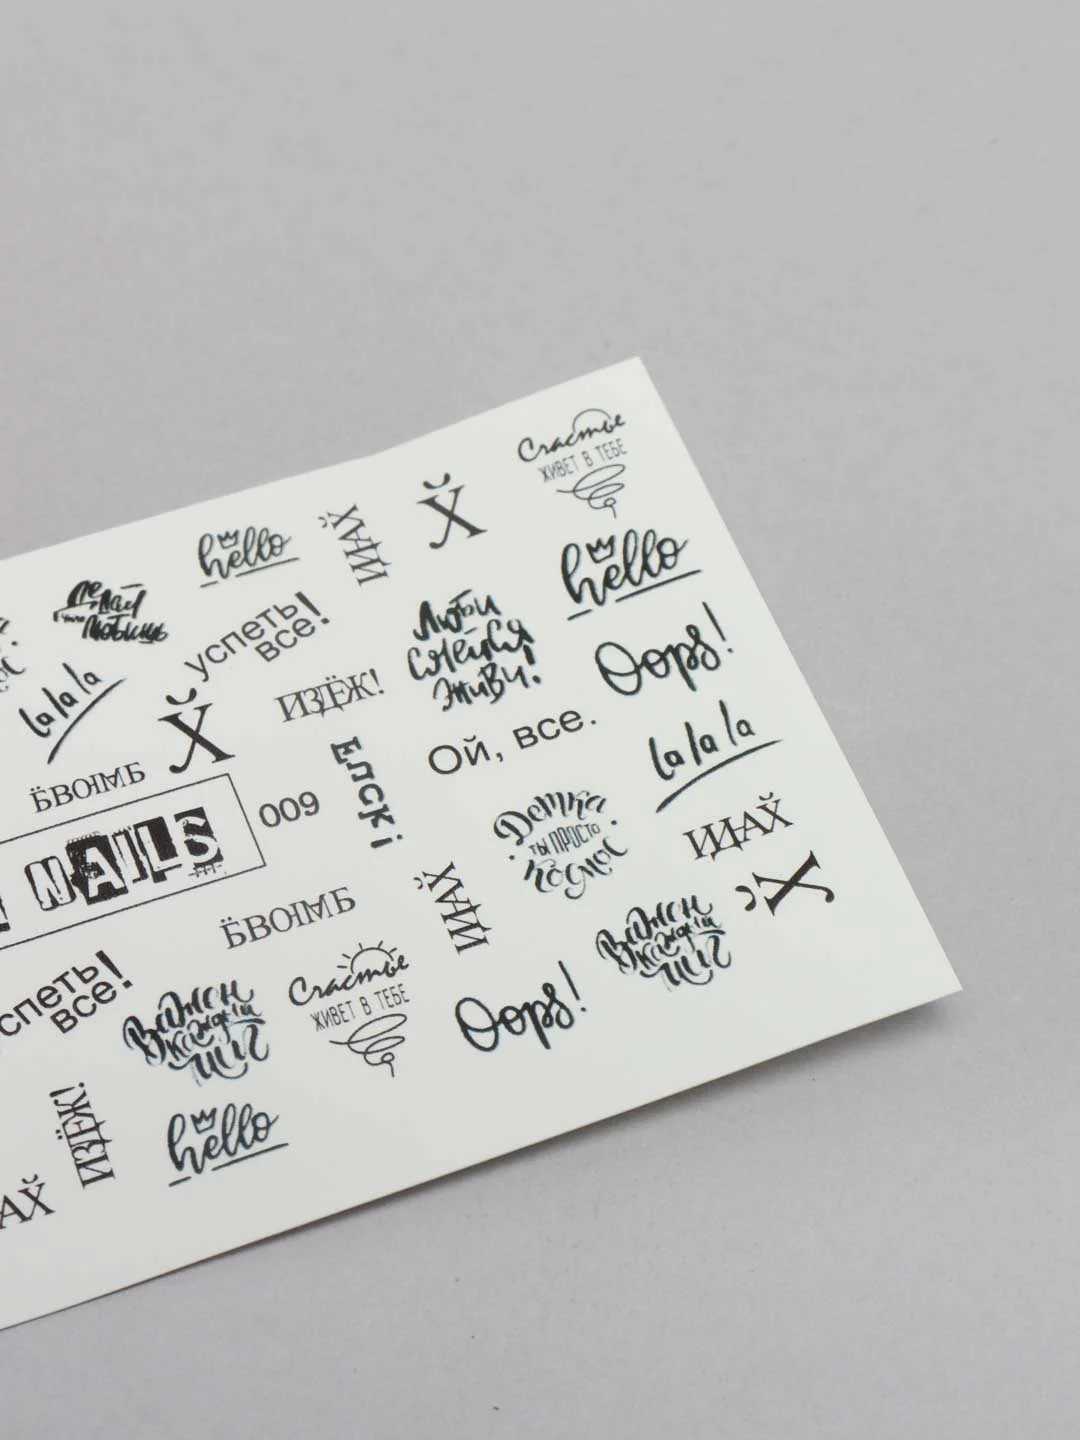 Счастье
ЖИВЕТ В ТЕБЕ
hello
ЙДАХ
Х̆
hello
Делай
что
любишь
успеть
все!
Люби
смейся
живи!
Oops!
la la la
Х̆
ИЗДЁЖ!
Ой, все.
la la la
ЁВОЮМБ
ЕПСКi
009
NAILS
Детка
ТЫ ПРОСТО
космос
ЙДАХ
Х̆
ЁВОЮМБ
ЙДАХ
Важен
каждый
миг
успеть
все!
Счастье
ЖИВЕТ В ТЕБЕ
Oops!
Важен
каждый
миг
hello
ИЗДЁЖ!